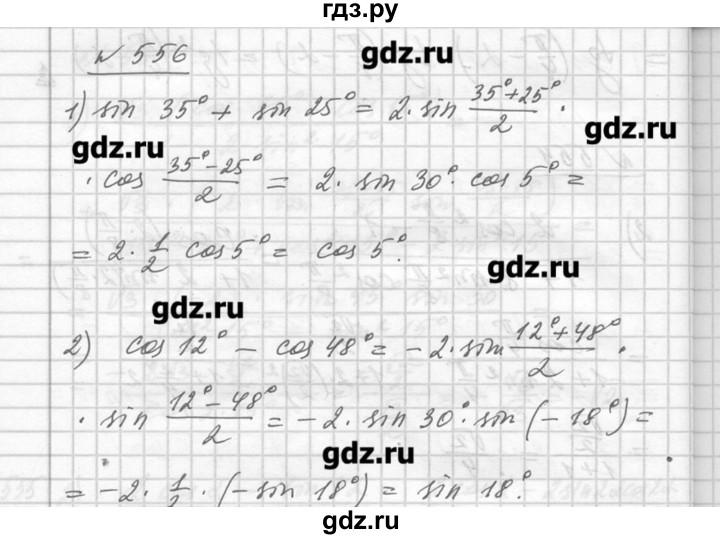 гдз.ру
N 556
gdz.ru
1) sin 35° + sin 25° = 2 · sin (35°+25°)/2 ·
gdz.ru
gdz.ru
· cos (35°-25°)/2 = 2 · sin 30° · cos 5° =
= 2 · 1/2 cos 5° = cos 5°.
gdz.ru
gdz.ru
2) cos 12° - cos 48° = -2 · sin (12°+48°)/2 ·
· sin (12°-48°)/2 = -2 · sin 30° · sin (-18°) =
gdz.ru
= -2 · 1/2 · (-sin 18°) = sin 18°.
gdz.ru